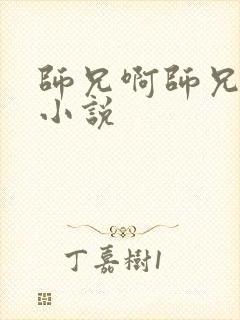 師兄啊師兄
小說
丁嘉樹1